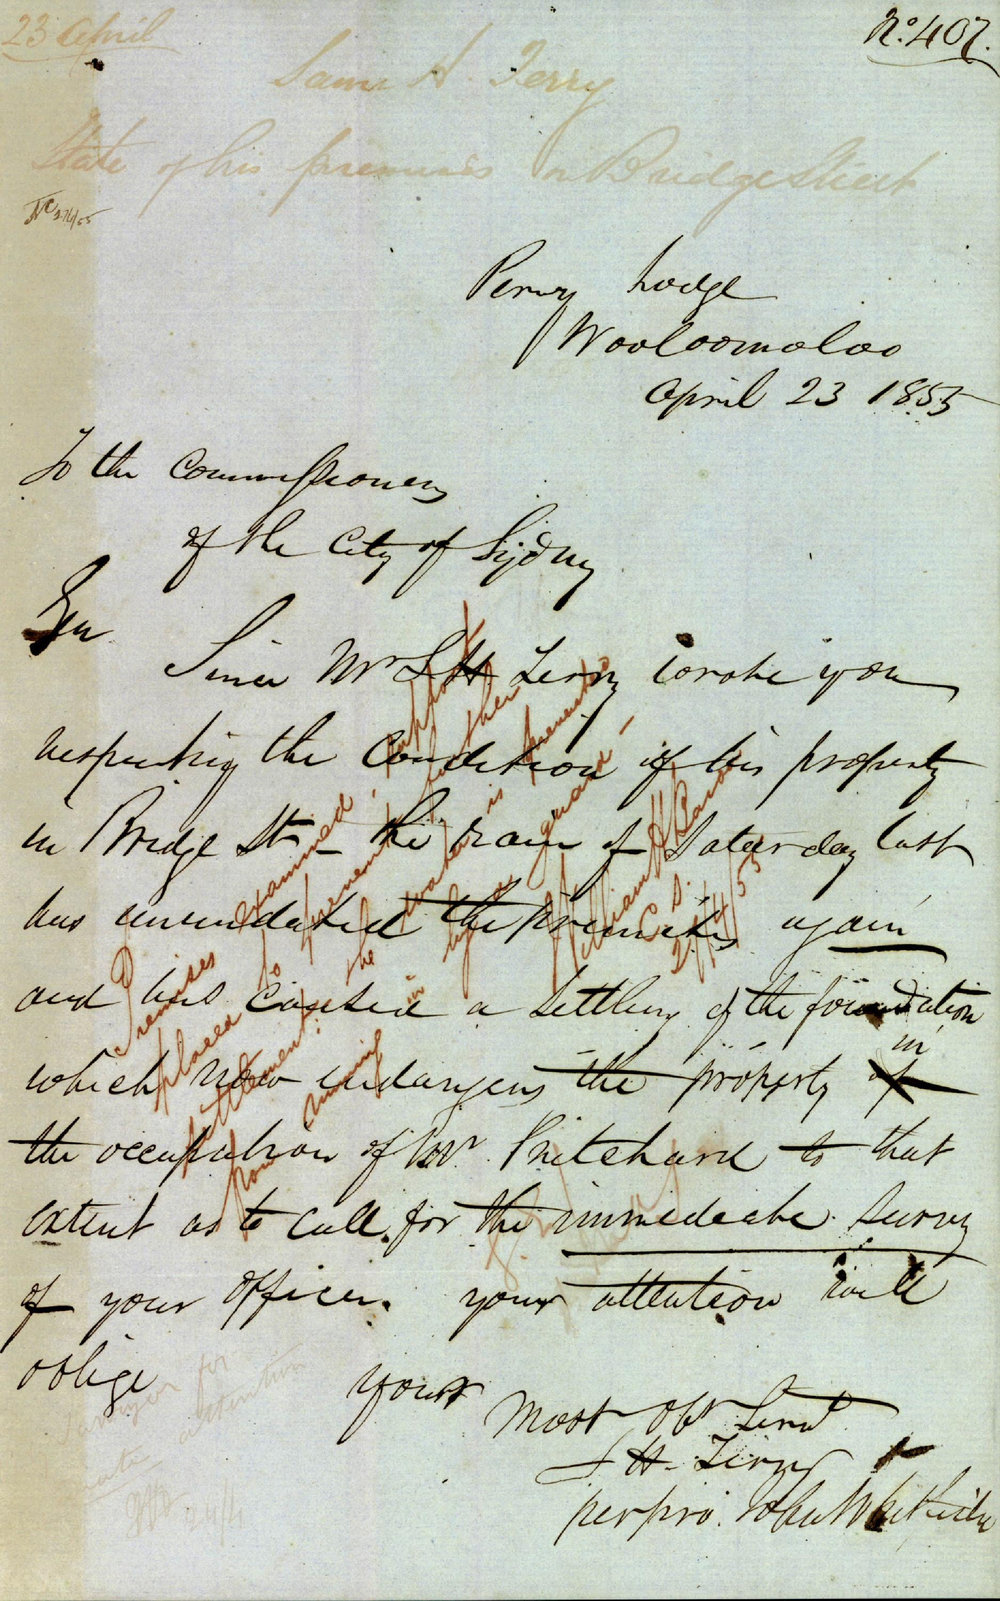 23 April
No. 407.
Saml H. Terry
State of his premises in Bridge Street
Percy Lodge
Wooloomoloo
April 23 1855
To the Commissioners
of the City of Sydney
Gen
Since Mr S H Terry wrote you
respecting the Condition of his property
in Bridge St – the rain of Saturday last
has innundated the premises again
and has caused a settling of the foundation
which now endangers the property in
the occupation of Mr. Pritchard to that
extent as to call for the immedeate Survey
of your officer. your attention will
oblige
yours
Most Obt Servt
S H. Terry
perpro. John Whiteside
Premises examined, support
placed to prevent further
settlement; the water is prevented
from running in by a guard –
William H. Baron
C. S.
27/4/55
Surveyor for
attention
24/4